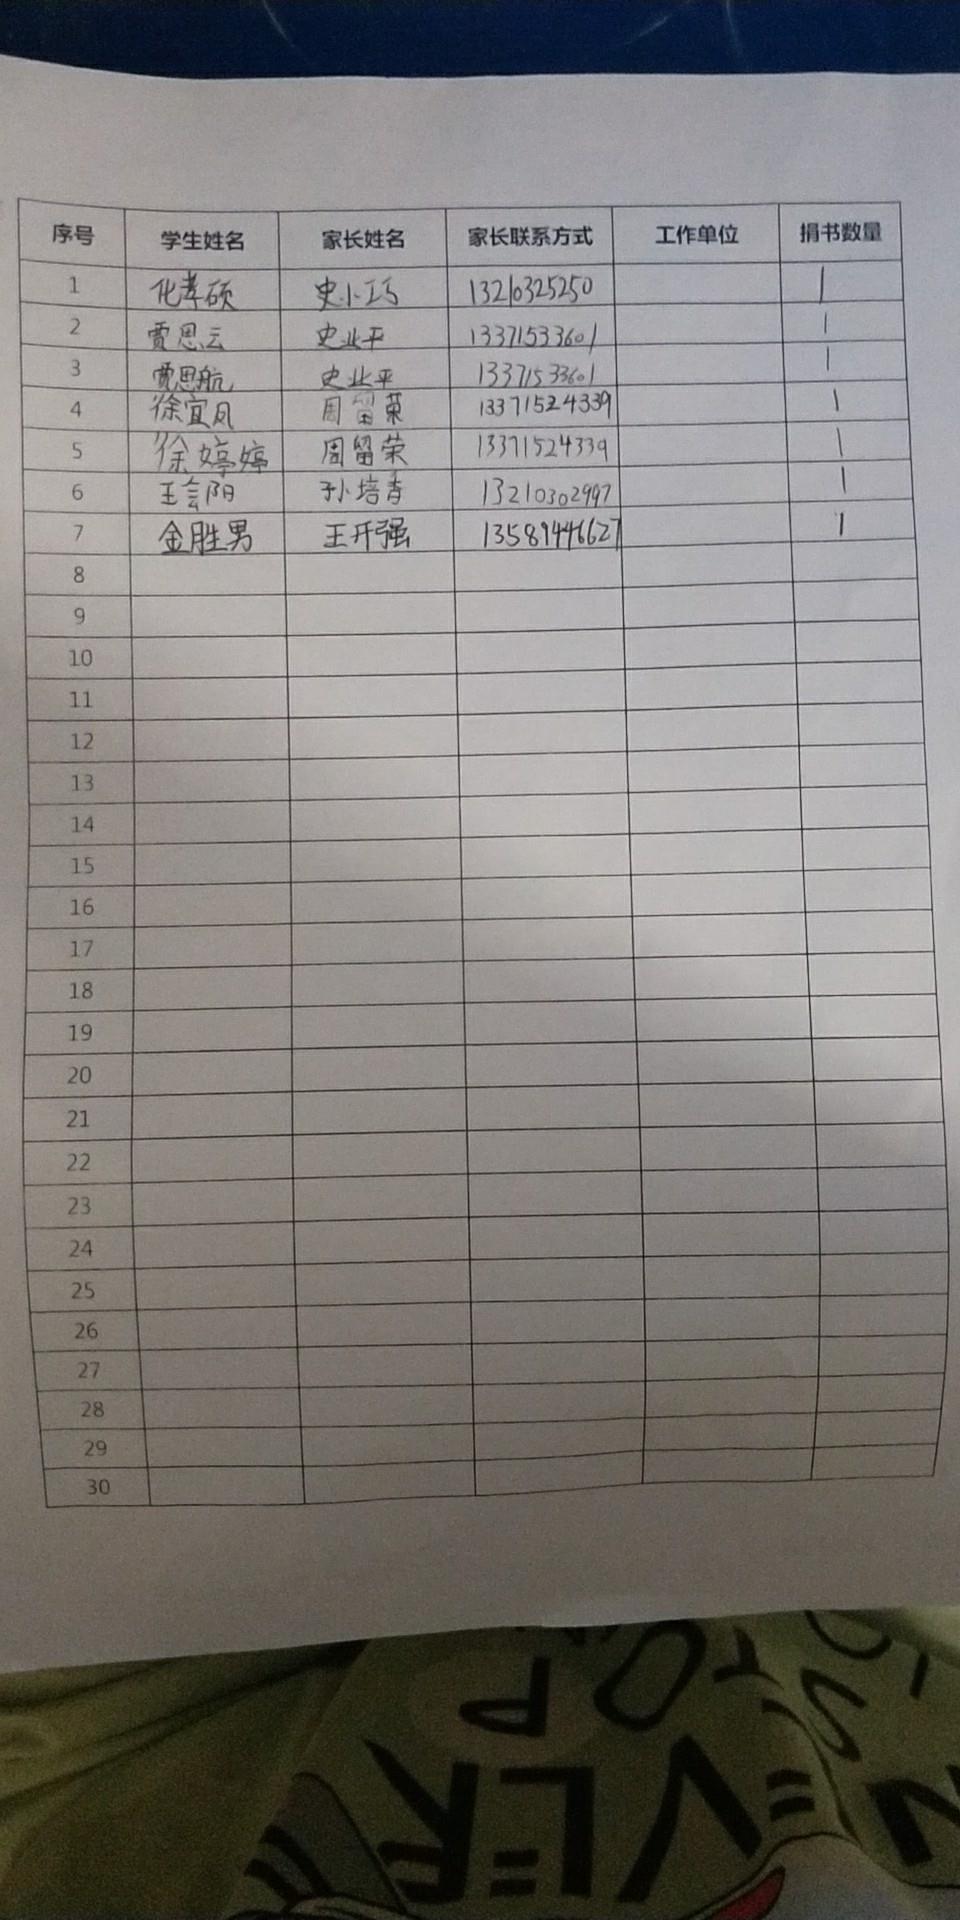 序号 学生姓名 家长姓名 家长联系方式 工作单位 捐书数量
1 化孝硕 史小巧 13210325250 1
2 贾思云 史业平 13371533601 1
3 贾思航 史业平 13371533601 1
4 徐宜凤 周留荣 13371524339 1
5 徐婷婷 周留荣 13371524339 1
6 王会阳 孙培青 13210302997 1
7 金胜男 王开强 13589446627 1
8
9
10
11
12
13
14
15
16
17
18
19
20
21
22
23
24
25
26
27
28
29
30